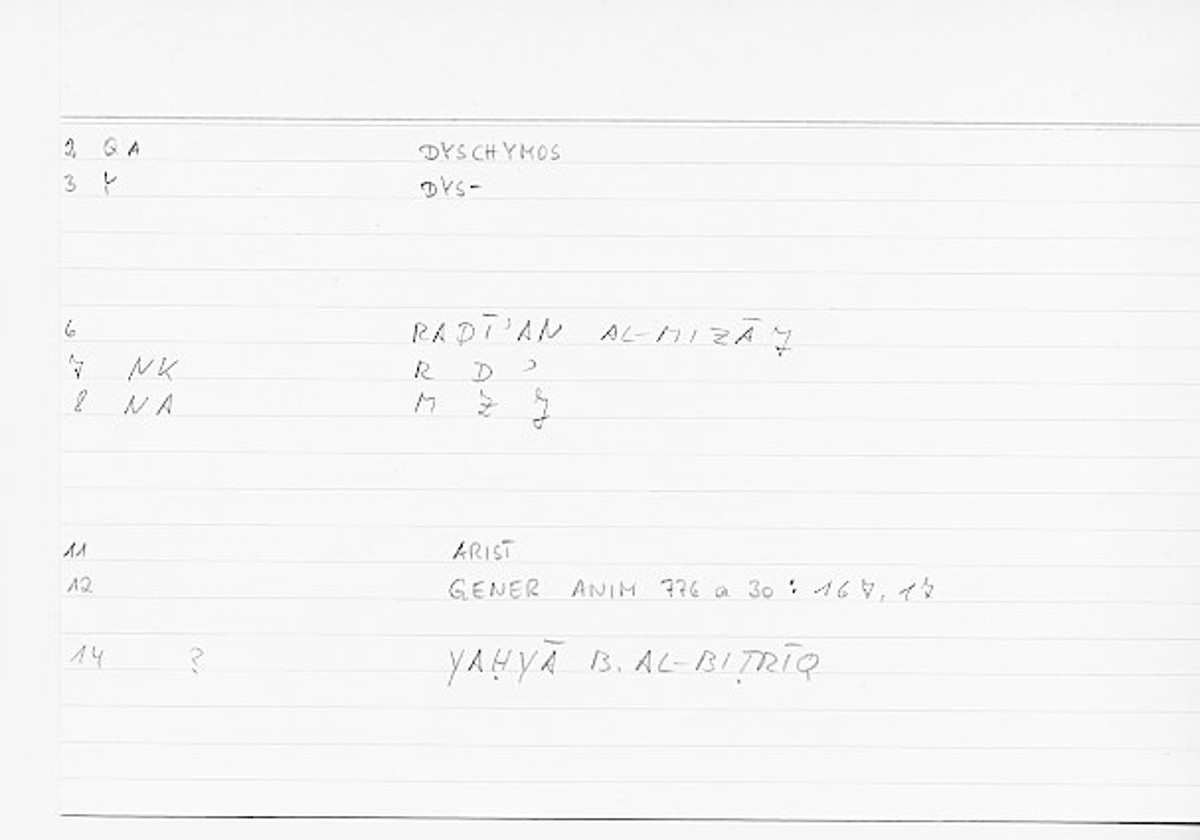 2 QA DYSCHYMOS
3 Y DYS-
6 RADĪʾAN AL-MIZĀJ
7 NK R D ʾ
8 NA M Z J
11 ARIST
12 GENER ANIM 776 a 30 : 167, 17
14 ? YAḤYĀ B. AL-BIṬRĪQ